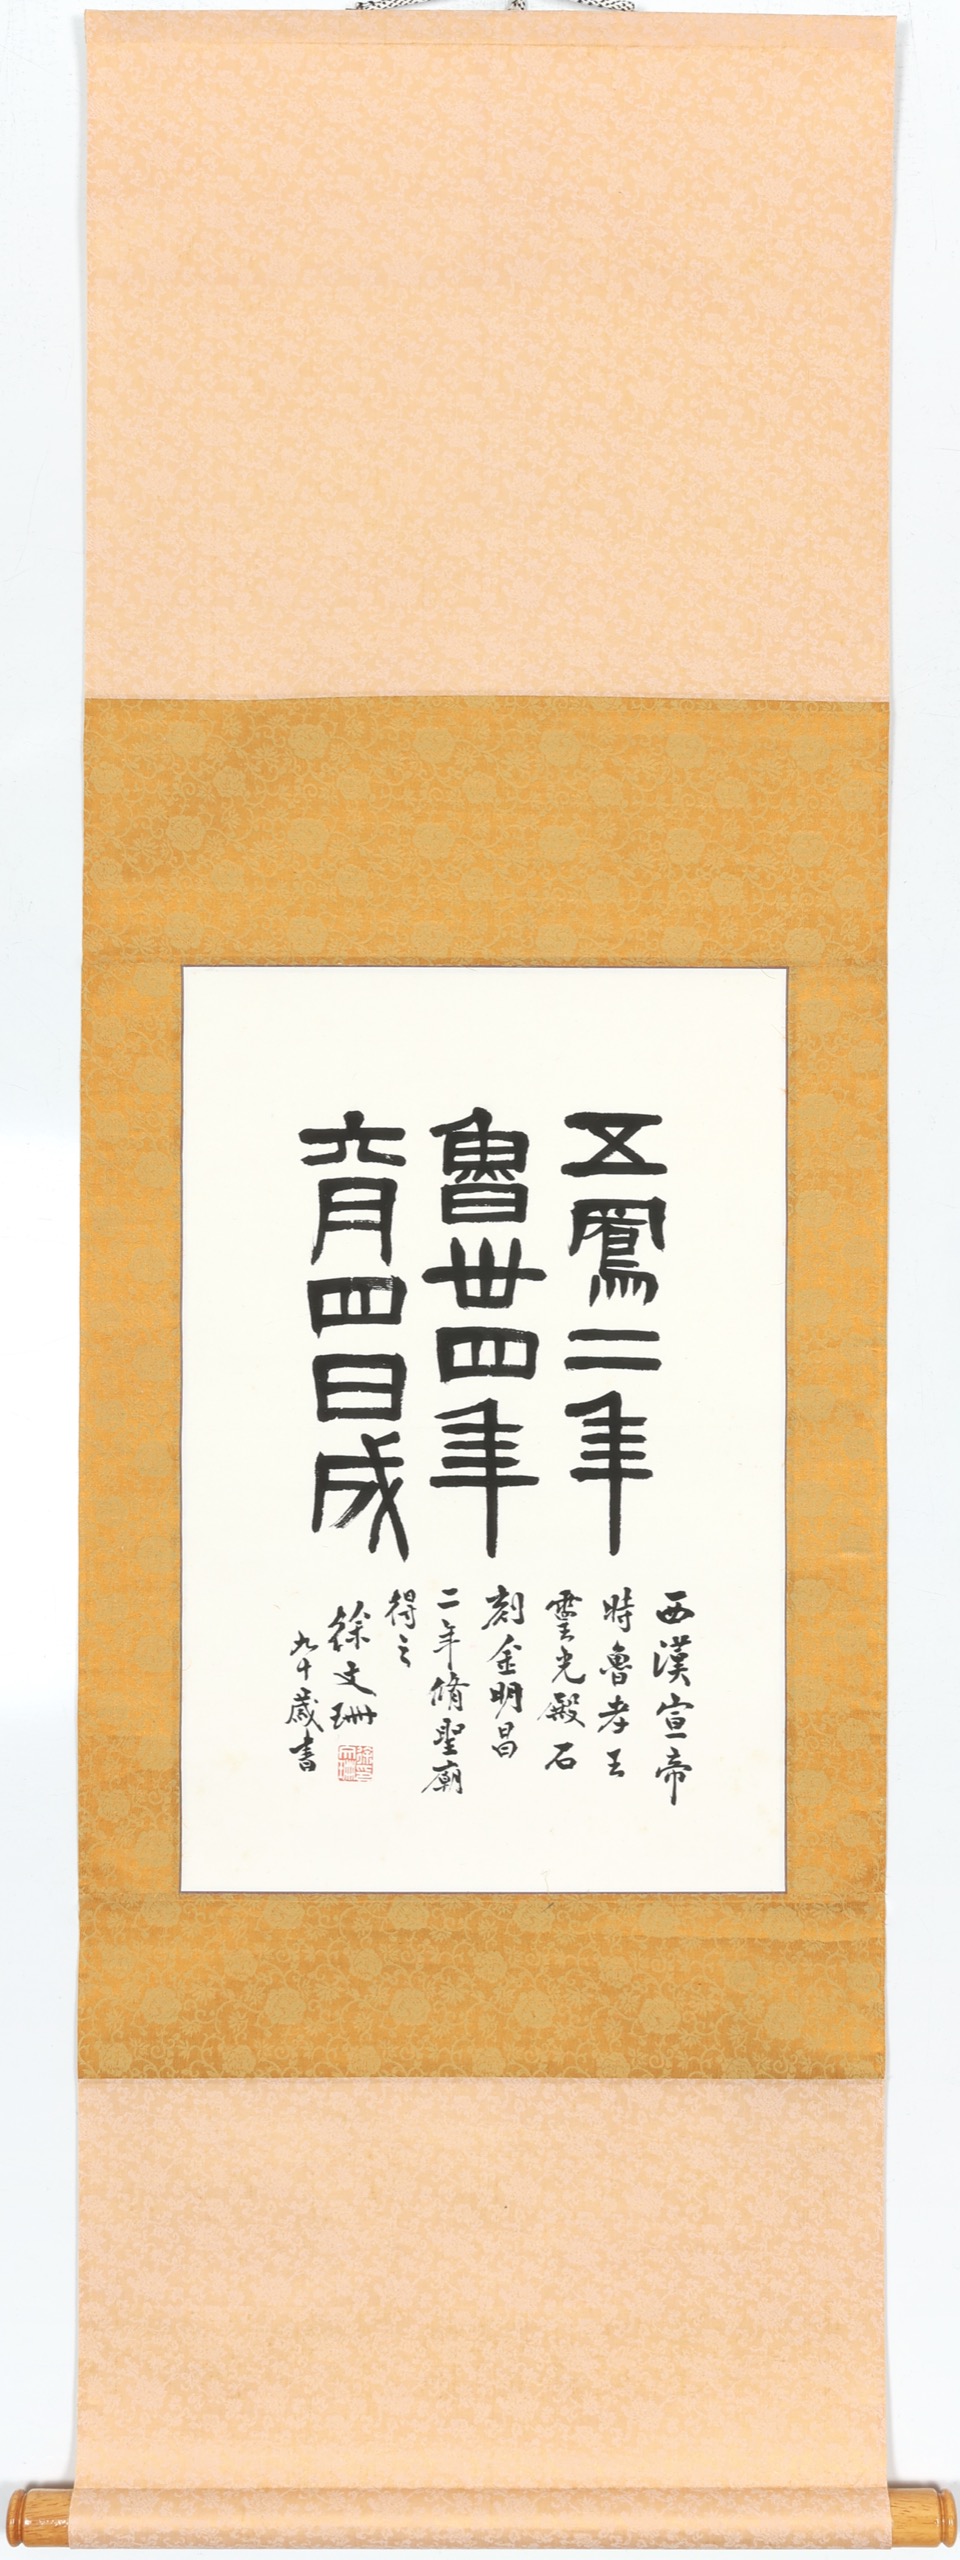 五鳳二年
魯卅四年
六月四日成
西漢宣帝
時魯孝王
靈光殿石
刻金明昌
二年脩聖廟
得之
徐文珊
九十歲書